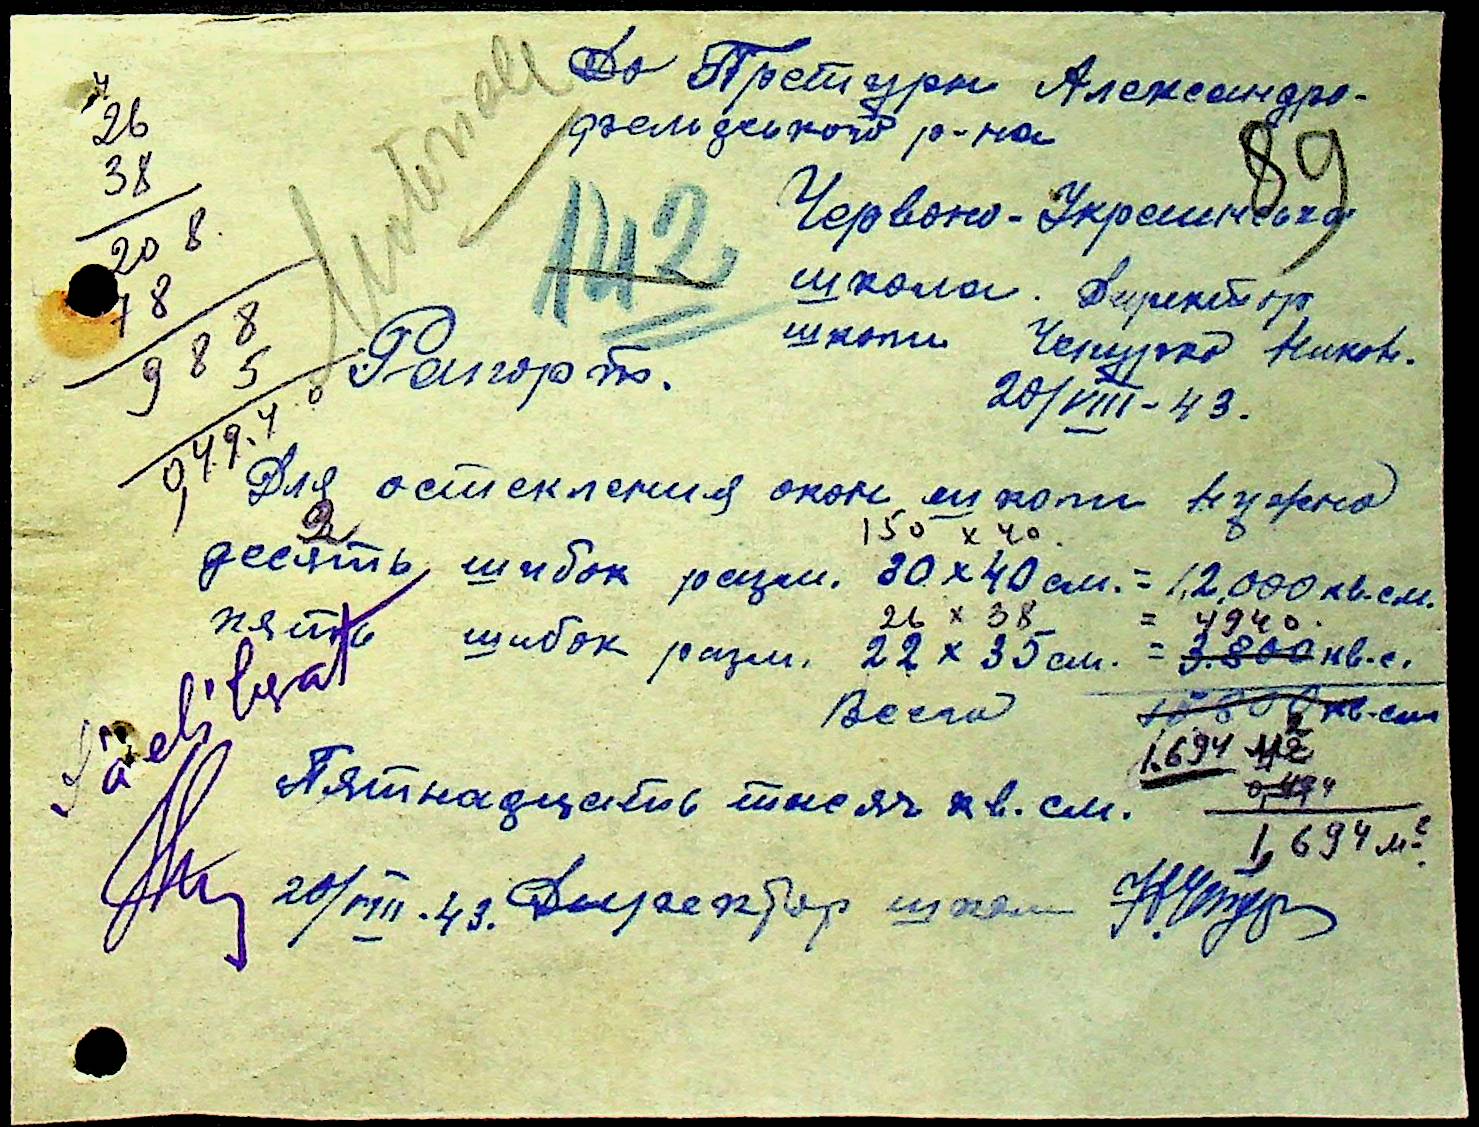 До Претури Александро-
фельдського р-на
89
Materiale
142
Червоно-Украинська
школа. Директор
школи Чепурко Никол.
20/VIII-43.
Рапорт.
26
38
208.
78
988
5
0,4940
Для остекления окон школи нужно
2
150 x 40.
десять шибок разм. 30 x 40 см. = 12.000 кв.см.
26 x 38 = 4940.
пять шибок разм. 22 x 35 см. = 3.800 кв.с.
Всего кв.см
1.694 м2
0,494
1,694 м2.
Пятнадцать тисяч кв. см.
20/VIII-43. Директор школи Н.Чепур